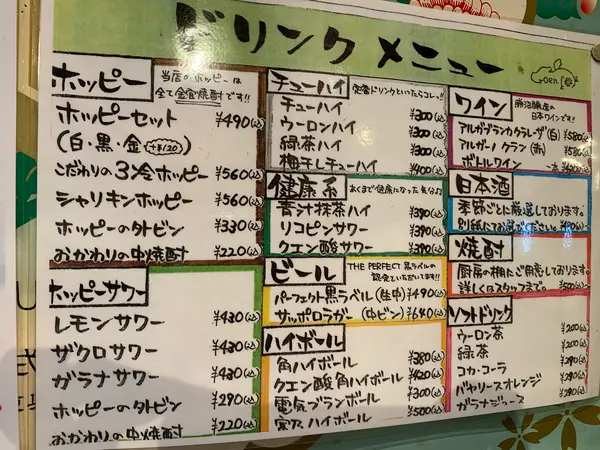 ドリンクメニュー
ホッピー
当店のホッピーは
全て金宮焼酎です!!
ホッピーセット ¥490(込)
(白・黒・金 (+¥120))
こだわりの3冷ホッピー ¥560(込)
シャリキンホッピー ¥560(込)
ホッピーの外ビン ¥330(込)
おかわりの中焼酎 ¥220(込)
ホッピーサワー
レモンサワー ¥430(込)
ザクロサワー ¥430(込)
ガラナサワー ¥430(込)
ホッピーの外ビン ¥290(込)
おかわりの中焼酎 ¥220(込)
チューハイ
定番ドリンクといったらコレッ!!
チューハイ ¥300(込)
ウーロンハイ ¥300(込)
緑茶ハイ ¥300(込)
梅干しチューハイ ¥400(込)
健康系
あくまで健康になった気分♪
青汁抹茶ハイ ¥390(込)
リコピンサワー ¥390(込)
クエン酸サワー ¥390(込)
ビール
THE PERFECT 黒ラベルの
認定でいただいてます!!
パーフェクト黒ラベル(生中) ¥490(込)
サッポロラガー(中ビン) ¥640(込)
ハイボール
角ハイボール ¥380(込)
クエン酸角ハイボール ¥420(込)
電気ブランボール ¥300(込)
ハイボール ¥500(込)
ワイン
日本ワインです!!
アルガブランカクラレーザ(白) ¥580(込)
アルガーノ クラン(赤) ¥580(込)
ボトルワイン
日本酒
季節ごとに厳選しております。
別紙にてお選びください。
焼酎
厨房の棚にご用意しております。
詳しくはスタッフまで。 ¥500(込)
ソフトドリンク
ウーロン茶 ¥200(込)
緑茶 ¥200(込)
コカ・コーラ ¥290(込)
バヤリースオレンジ ¥290(込)
ガラナジュース ¥290(込)